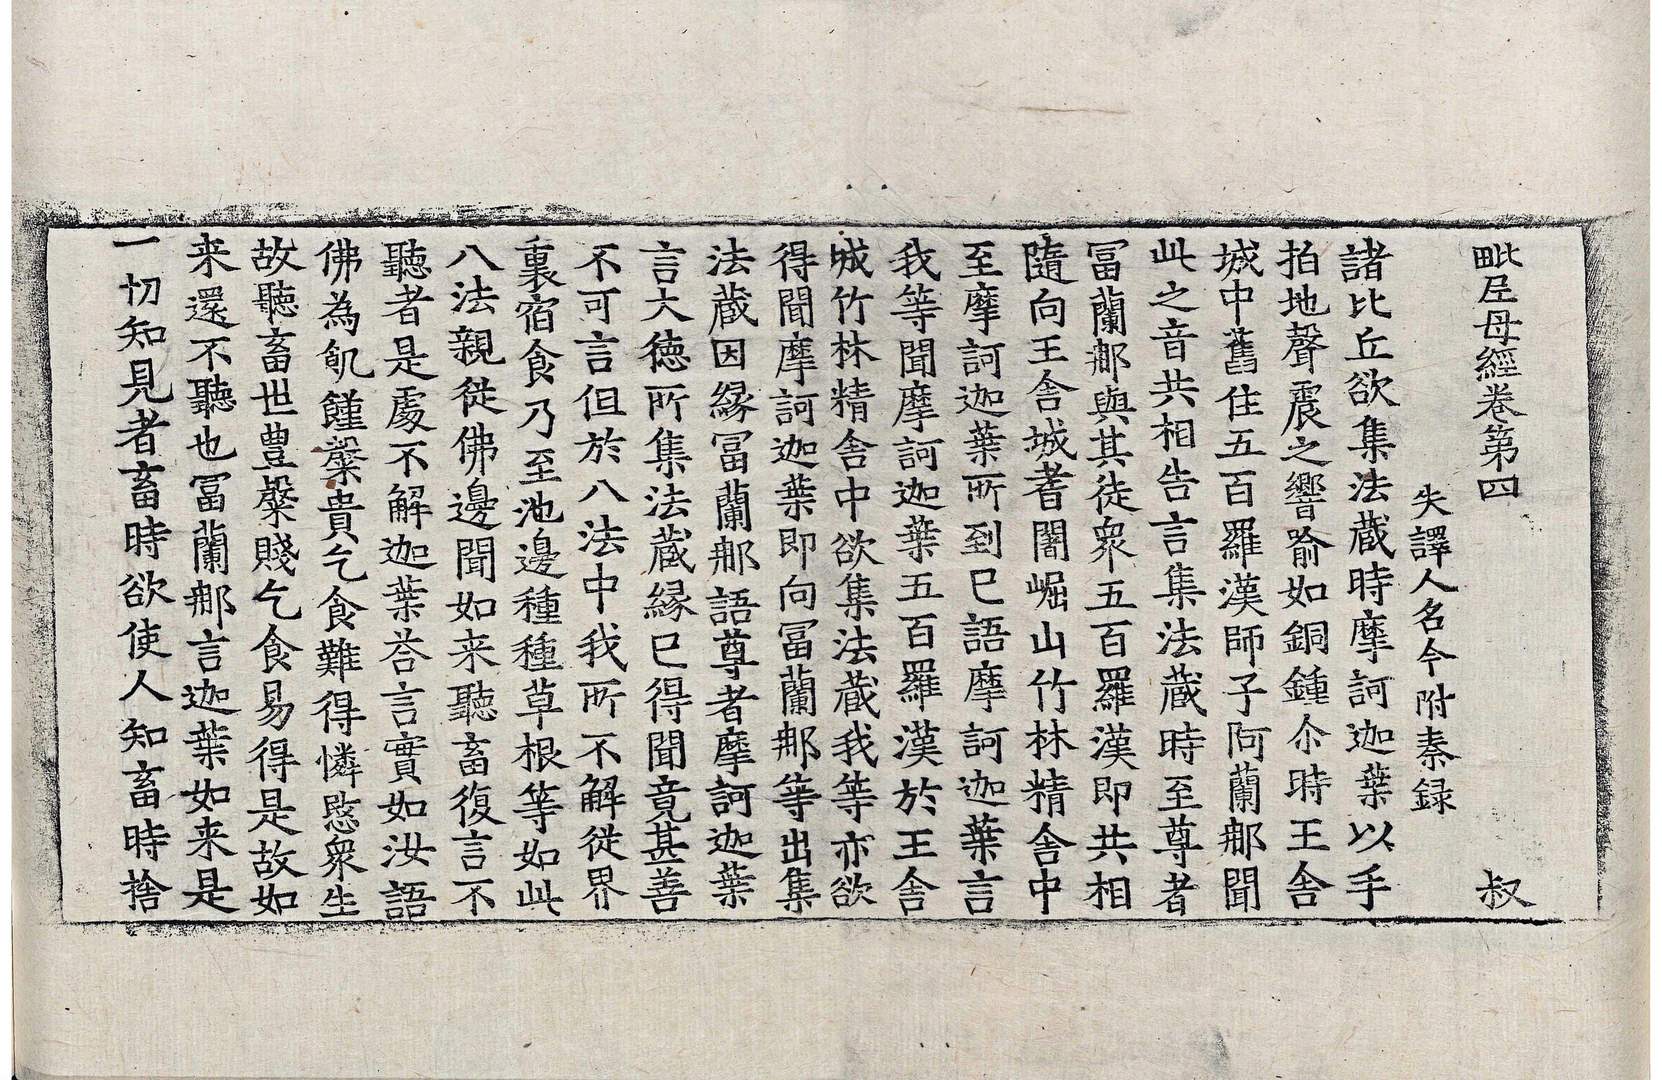 毗𡰱母經卷第四 叔
失譯人名今附秦録
諸比丘欲集法蔵時摩訶迦葉以手
拍地聲震之響喻如銅鍾尒時王舎
城中舊住五百羅漢師子阿蘭郍聞
此之音共相告言集法蔵時至尊者
冨蘭郍與其徒衆五百羅漢即共相
隨向王舎城耆闍崛山竹林精舎中
至摩訶迦葉所到已語摩訶迦葉言
我等聞摩訶迦葉五百羅漢於王舎
城竹林精舎中欲集法蔵我等亦欲
得聞摩訶迦葉即向冨蘭郍等出集
法蔵因縁冨蘭郍語尊者摩訶迦葉
言大徳所集法蔵縁已得聞竟甚善
不可言但於八法中我所不解従界
裏宿食乃至池邊種種草根等如此
八法親従佛邊聞如来聽畜復言不
聽者是處不解迦葉荅言實如汝語
佛為飢饉糓貴乞食難得憐愍衆生
故聽畜世豊糓賤乞食易得是故如
来還不聽也冨蘭郍言迦葉如来是
一切知見者畜時欲使人知畜時捨